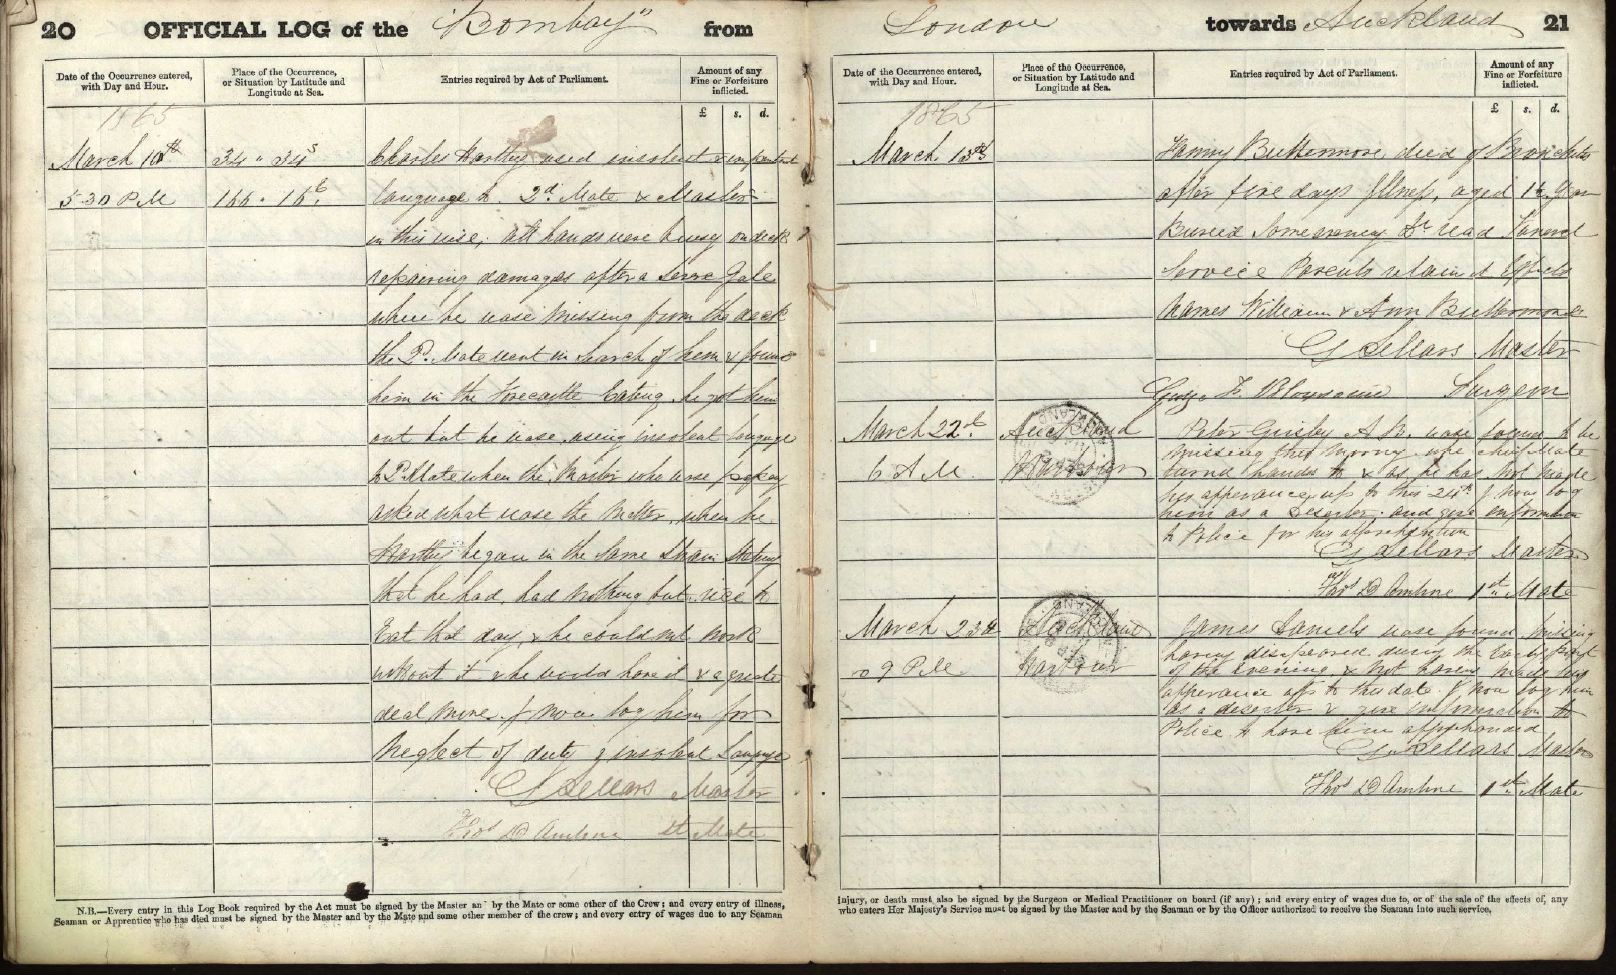 20 OFFICIAL LOG of the "Bombay" from
Date of the Occurrence entered, with Day and Hour.
Place of the Occurrence, or Situation by Latitude and Longitude at Sea.
Entries required by Act of Parliament.
Amount of any Fine or Forfeiture inflicted.
£ s. d.
1865
March 10th 34 " 34 S Charles Hartley used insolent &
5-30 PM 166 . 16 E language to 2d Mate & Master
in this wise, All hands were busey on deck
repairing damages after a Gale
where he wase missing from the deck
the 2d Mate went in search of him & found
him in the Forecastle Eating. he got him
out but he wase using insolent language
to 2d Mate when the Master who wase
asked what wase the Matter, when he
Hartley began in the same strain
that he had, had nothing but rice to
Eat that day, & he could not work
without it & he would have it & a greate
deal more. I now log him for
Neglect of duty & insolent Languge
G Sellars Master
Thos D Amline 1st Mate
N.B.—Every entry in this Log Book required by the Act must be signed by the Master and by the Mate or some other of the Crew; and every entry of illness,
Seaman or Apprentice who has died must be signed by the Master and by the Mate and some other member of the crew; and every entry of wages due to any Seaman
London towards Auckland 21
Date of the Occurrence entered, with Day and Hour.
Place of the Occurrence, or Situation by Latitude and Longitude at Sea.
Entries required by Act of Parliament.
Amount of any Fine or Forfeiture inflicted.
£ s. d.
1865
March 13th Fanny Buttermore died of Bronchitis
after five days Illness, aged
Buried Same Dr read Funeral
Service Parents retained Effects
Names William & Ann Buttermore
G Sellars Master
Surgeon
March 22d Auckland Peter Grisby A B. wase found to be
missing this Morng when chief Mate
6 A M. Harbour turnd hands to & as he has not made
his apperance up to this 24th I now log
him as a Deserter. and give information
to Police for his apprehention
G Sellars Master
Thos D Amline 1st Mate
March 23d Auckland James Daniels wase found missing
having disapeared during the Early part
9 P.M. Harbour of the evening & not having made his
apperance up to this date. I now log him
as a deserter & give information to
Police to have him apprehended
G Sellars Master
Thos D Amline 1st Mate
injury, or death must also be signed by the Surgeon or Medical Practitioner on board (if any); and every entry of wages due to, or of the sale of the effects of, any
who enters Her Majesty's Service must be signed by the Master and by the Seaman or by the Officer authorized to receive the Seaman into such service.